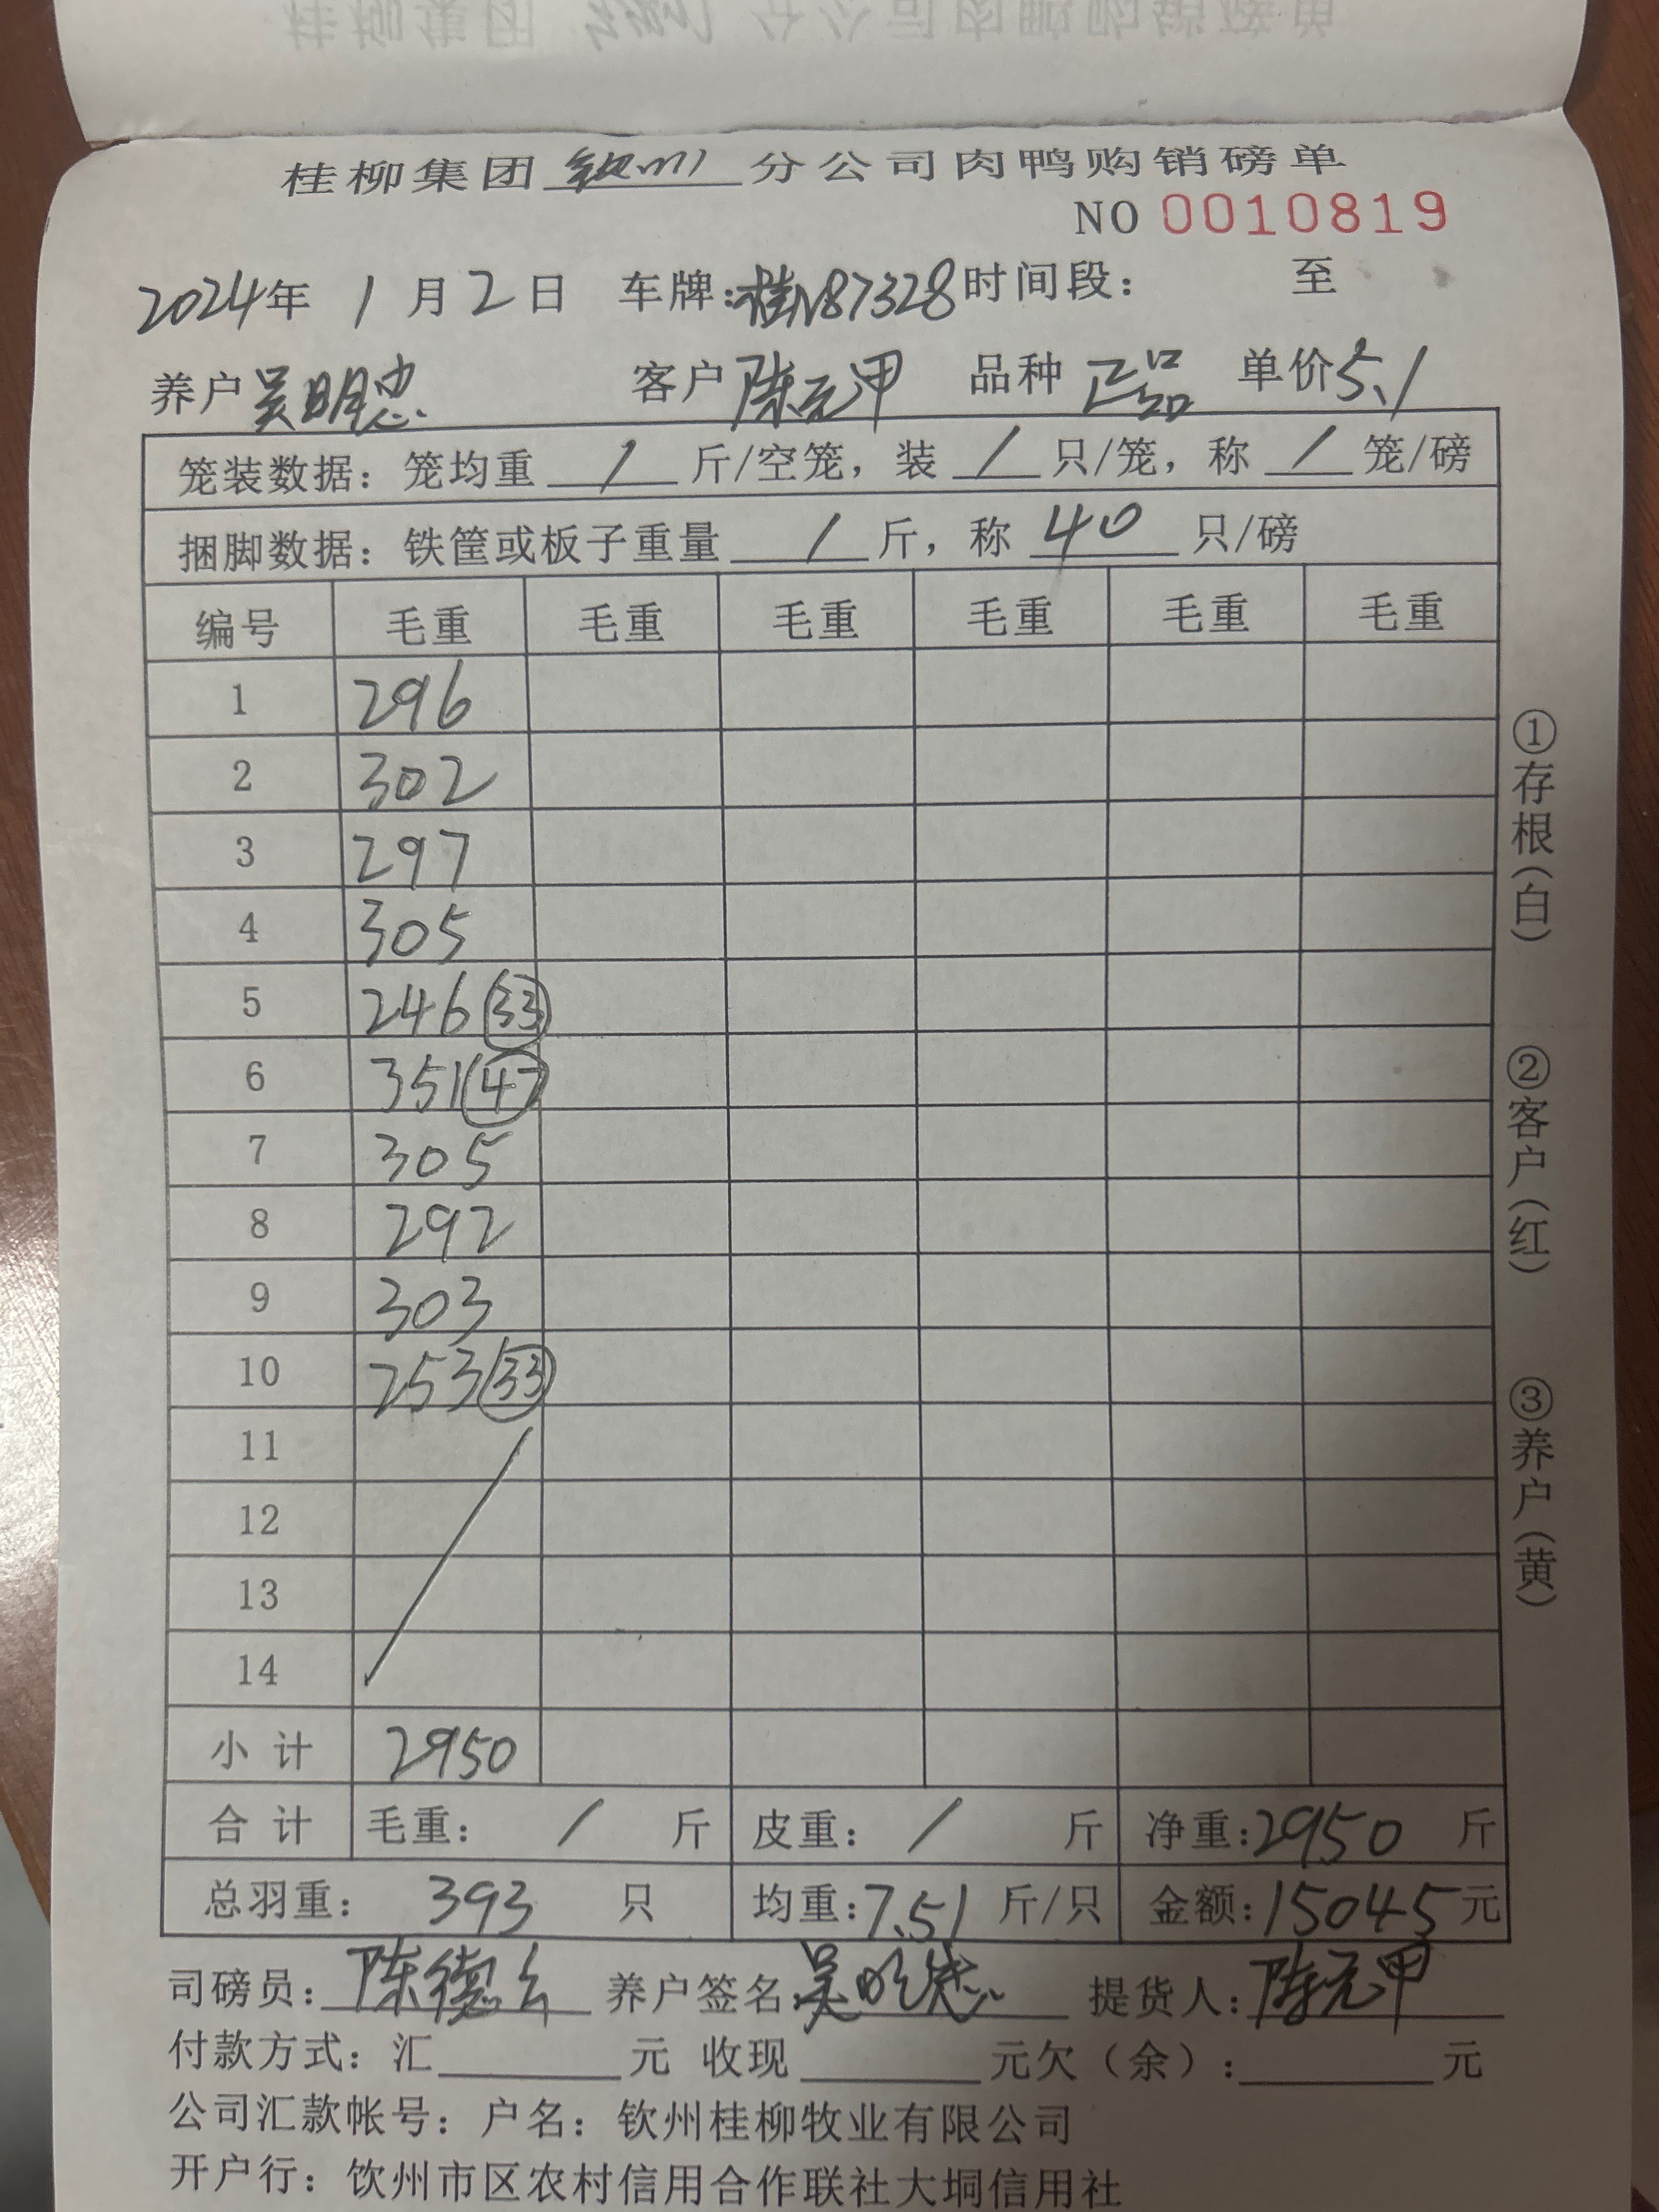 桂柳集团钦州分公司肉鸭购销磅单
NO 0010819
2024年 1月2日 车牌:桂N87328 时间段: 至
养户 吴明忠 客户 陈元甲 品种 正品 单价 5.1
笼装数据: 笼均重 / 斤/空笼, 装 / 只/笼, 称 / 笼/磅
捆脚数据: 铁筐或板子重量 / 斤, 称 40 只/磅
编号 毛重 毛重 毛重 毛重 毛重 毛重
1 296
2 302
3 297
4 305
5 246 (33)
6 351 (47)
7 305
8 292
9 303
10 253 (33)
11
12
13
14
小计 2950
合计 毛重: / 斤 皮重: / 斤 净重:2950 斤
总羽重: 393 只 均重:7.51 斤/只 金额:15045元
司磅员: 陈德 养户签名:吴明忠 提货人:陈元甲
付款方式: 汇 元 收现 元欠(余): 元
公司汇款帐号: 户名: 钦州桂柳牧业有限公司
开户行: 钦州市区农村信用合作联社大垌信用社
①存根(白) ②客户(红) ③养户(黄)